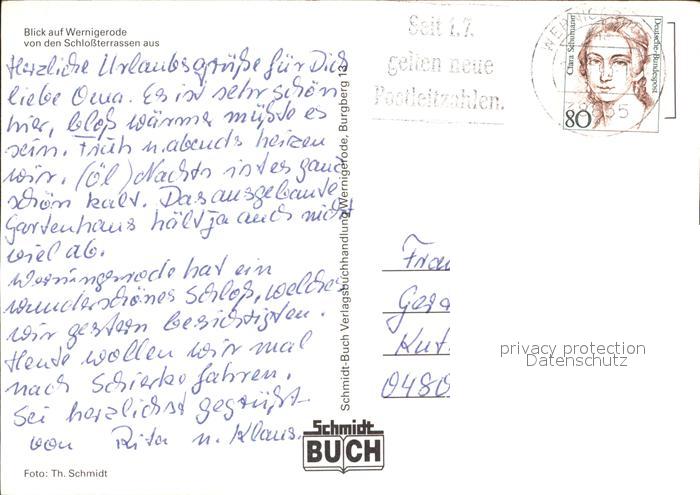 Blick auf Wernigerode
von den Schloßterrassen aus
Herzliche Urlaubsgrüße für Dich
liebe Oma. Es ist sehr schön
hier, bloß wärmer müßte es
sein. Früh u. abends heizen
wir. (Öl) Nachts ist es ganz
schön kalt. Das ausgebaute
Gartenhaus hält ja auch nicht
viel ab.
Wernigerode hat ein
wunderschönes Schloß, welches
wir gestern besichtigten.
Heute wollen wir mal
nach Schierke fahren.
Sei herzlichst gegrüßt
von Rita u. Klaus.
Foto: Th. Schmidt
Schmidt-Buch Verlagsbuchhandlung Wernigerode, Burgberg 13
Schmidt
BUCH
Seit 1.7.
gelten neue
Postleitzahlen.
WERNIGERODE
38855
Clara Schumann
Deutsche Bundespost
80
Frau
Gera
Kut
0480
privacy protection
Datenschutz